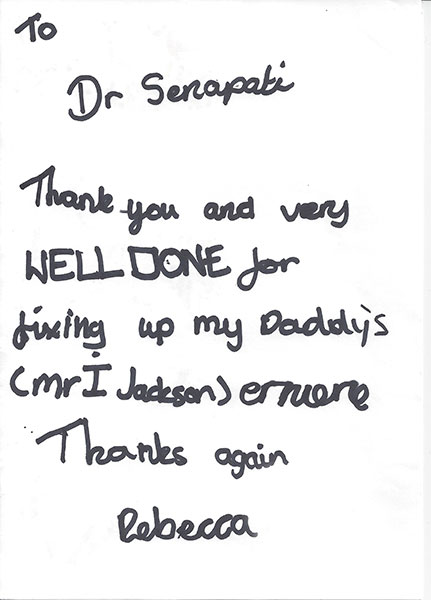 To
Dr Senapati
Thank you and very
WELL DONE for
fixing up my Daddy's
(mr I Jackson)
Thanks again
Rebecca